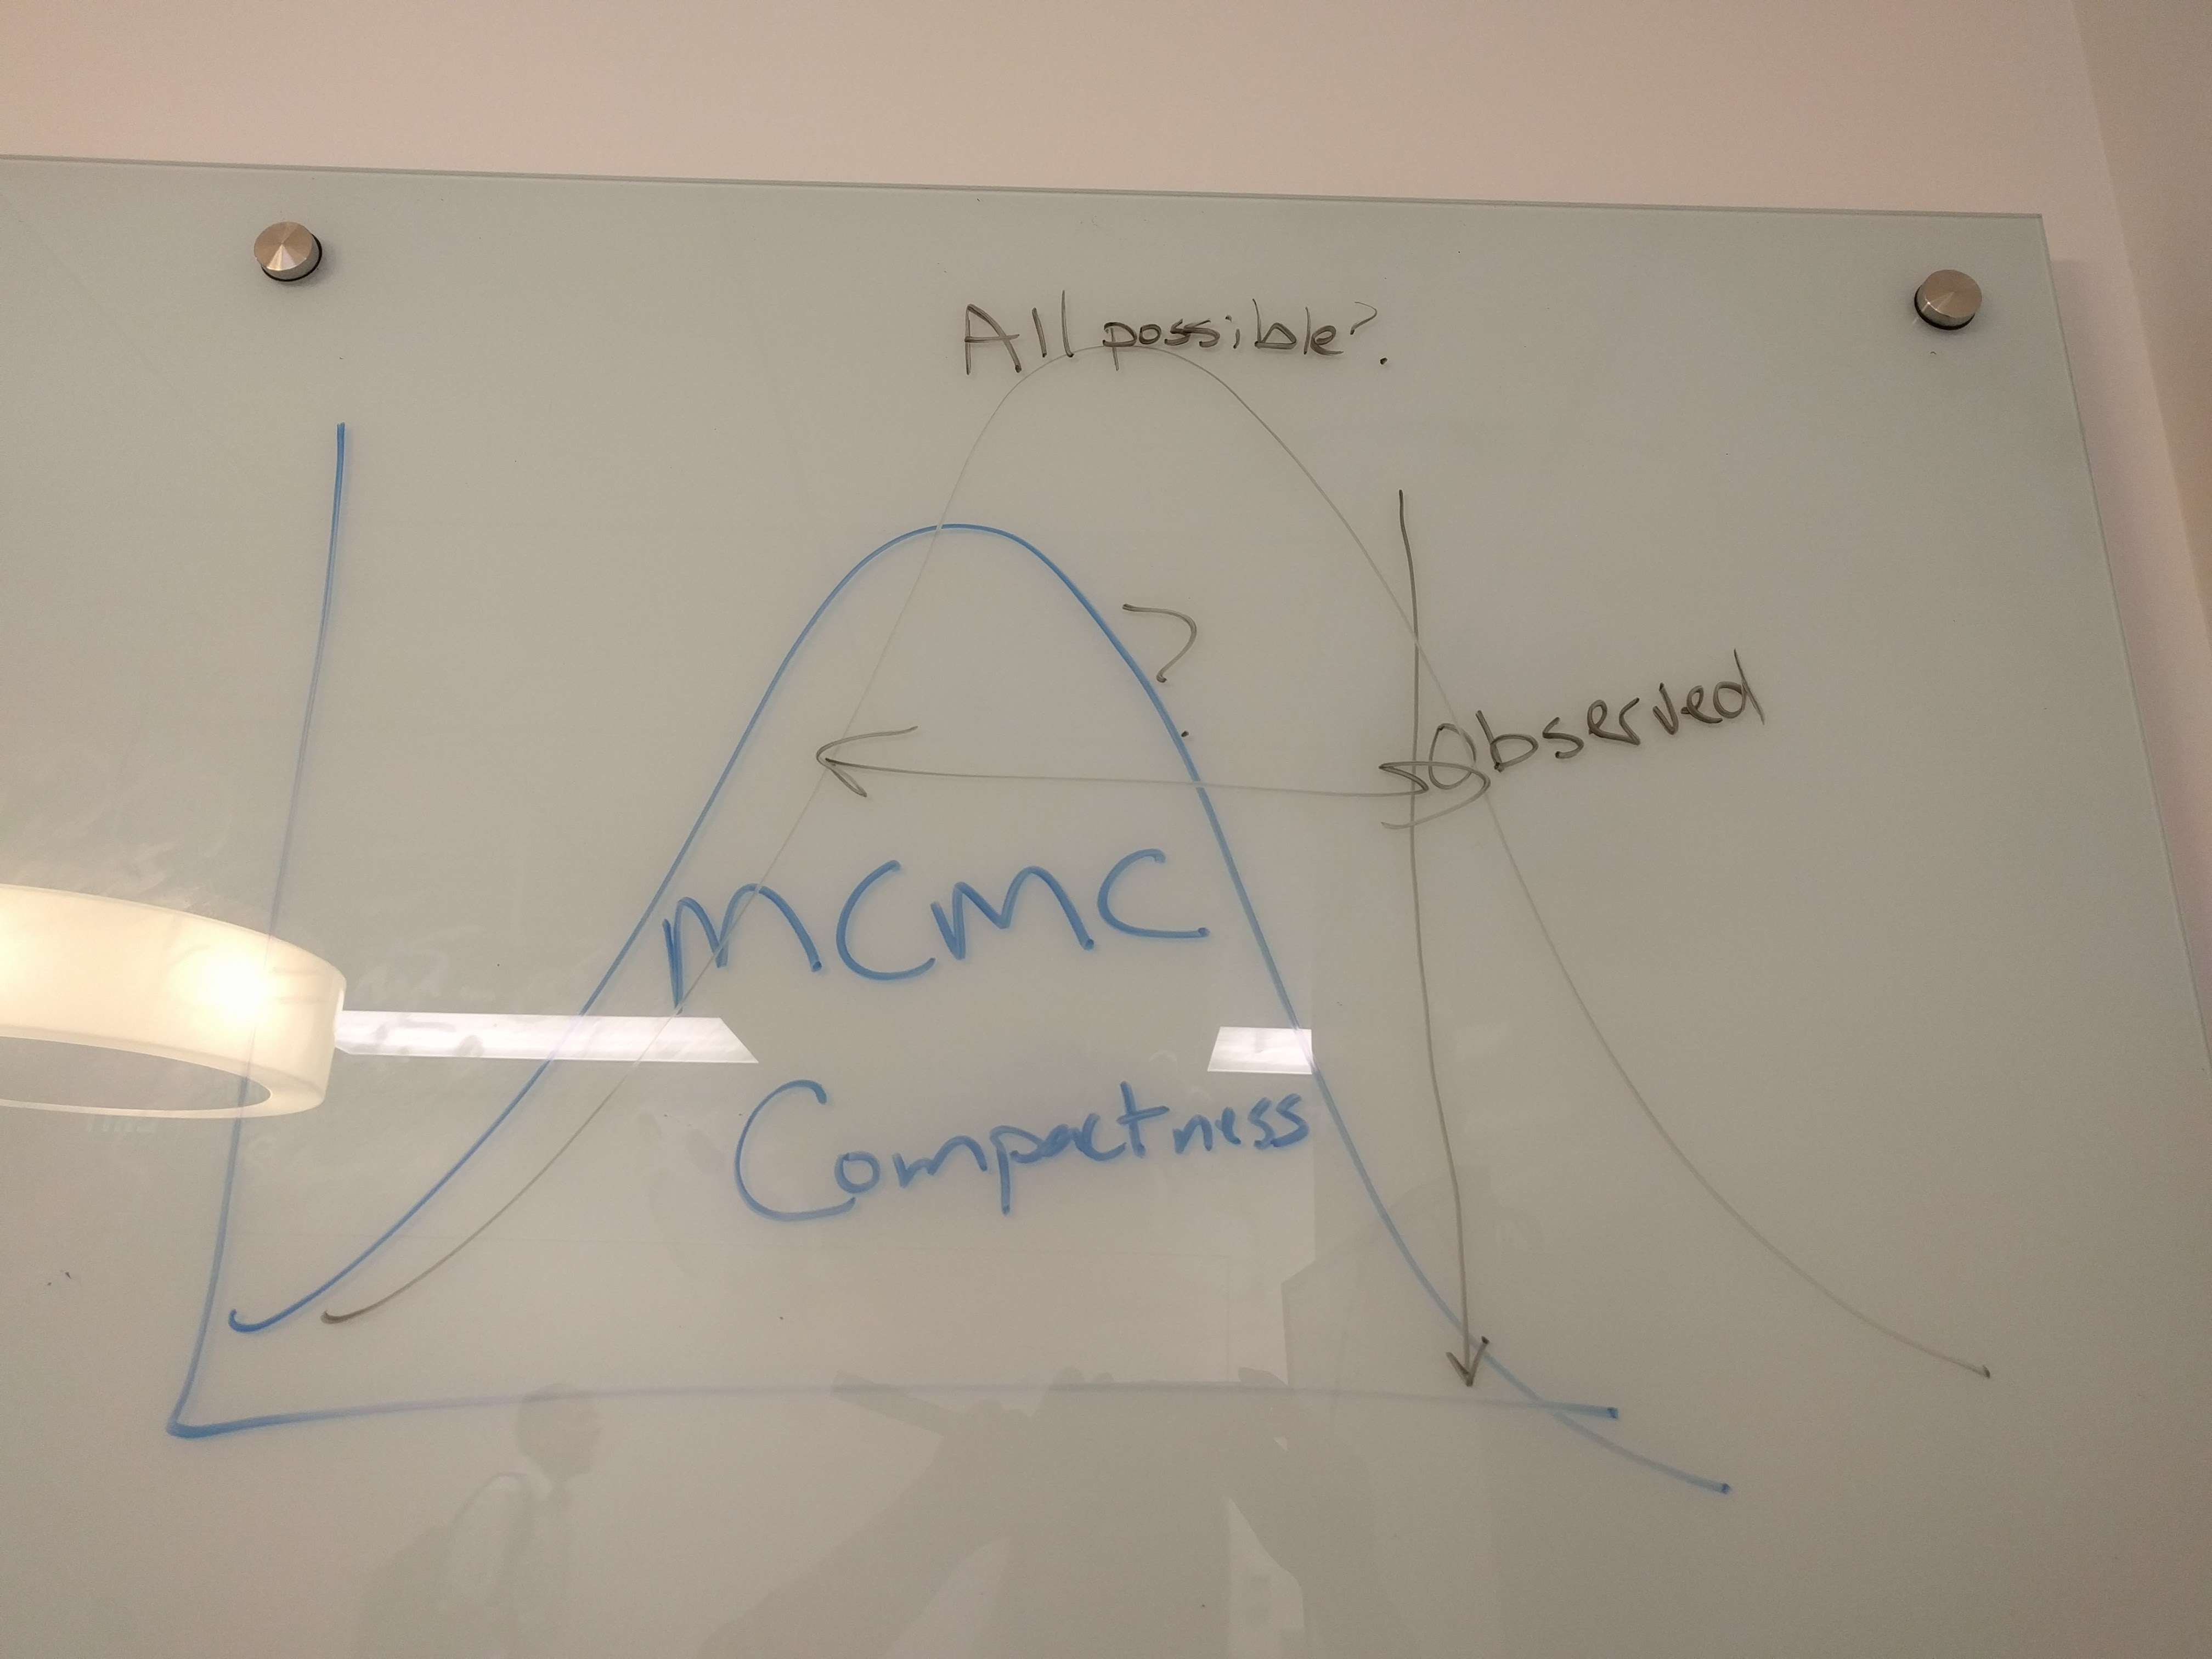 All possible?
?
Observed
MCMC
Compactness